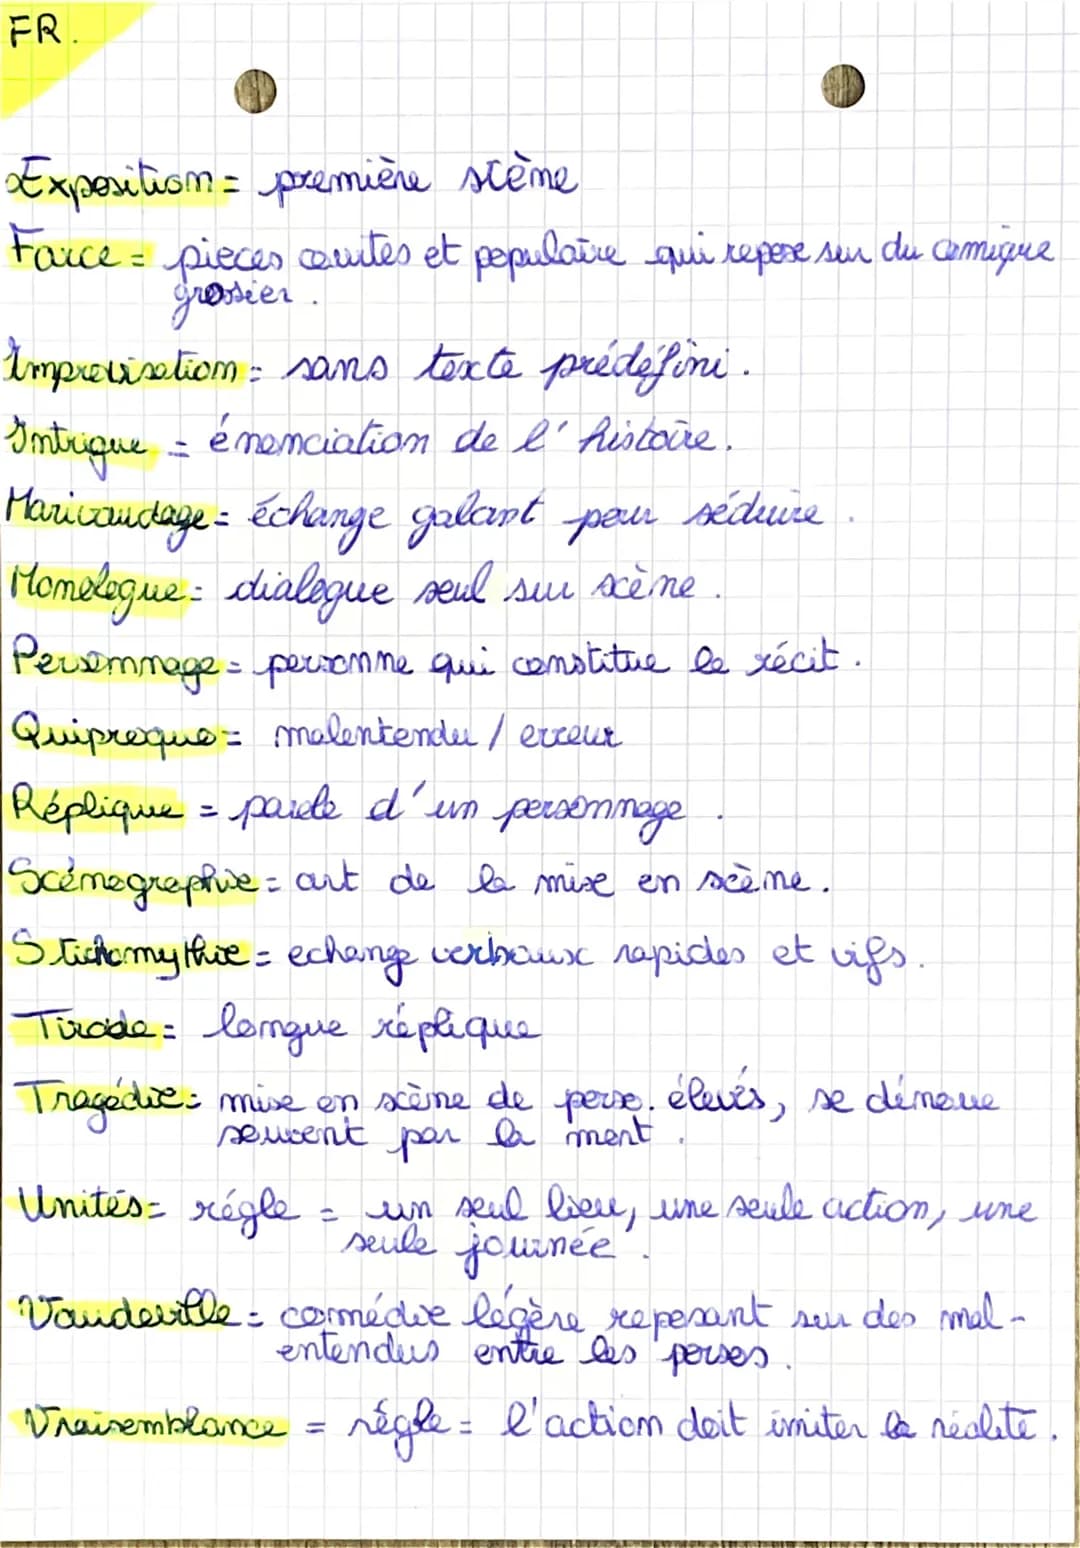 FR.
Exposition = première scène
Farce = pieces courtes et populaire qui repose sur du comique
grossier.
Improvisation = sans texte prédéfini.
Intrigue = énonciation de l'histoire.
Marivaudage = échange galant pour séduire.
Monologue = dialogue seul sur scène.
Personnage = personne qui constitue le récit.
Quiproquo = malentendu / erreur
Réplique = parole d'un personnage.
Scénographie = art de la mise en scène.
Stichomythie = echange verbaux rapides et vifs.
Tirade = longue réplique
Tragédie = mise en scène de perso. élevés, se dénoue
souvent par la mort.
Unités = régle = un seul lieu, une seule action, une
seule journée.
Vaudeville = comédie légère reposant sur des mal-
entendus entre les persos.
Vraisemblance = régle = l'action doit imiter la réalité.